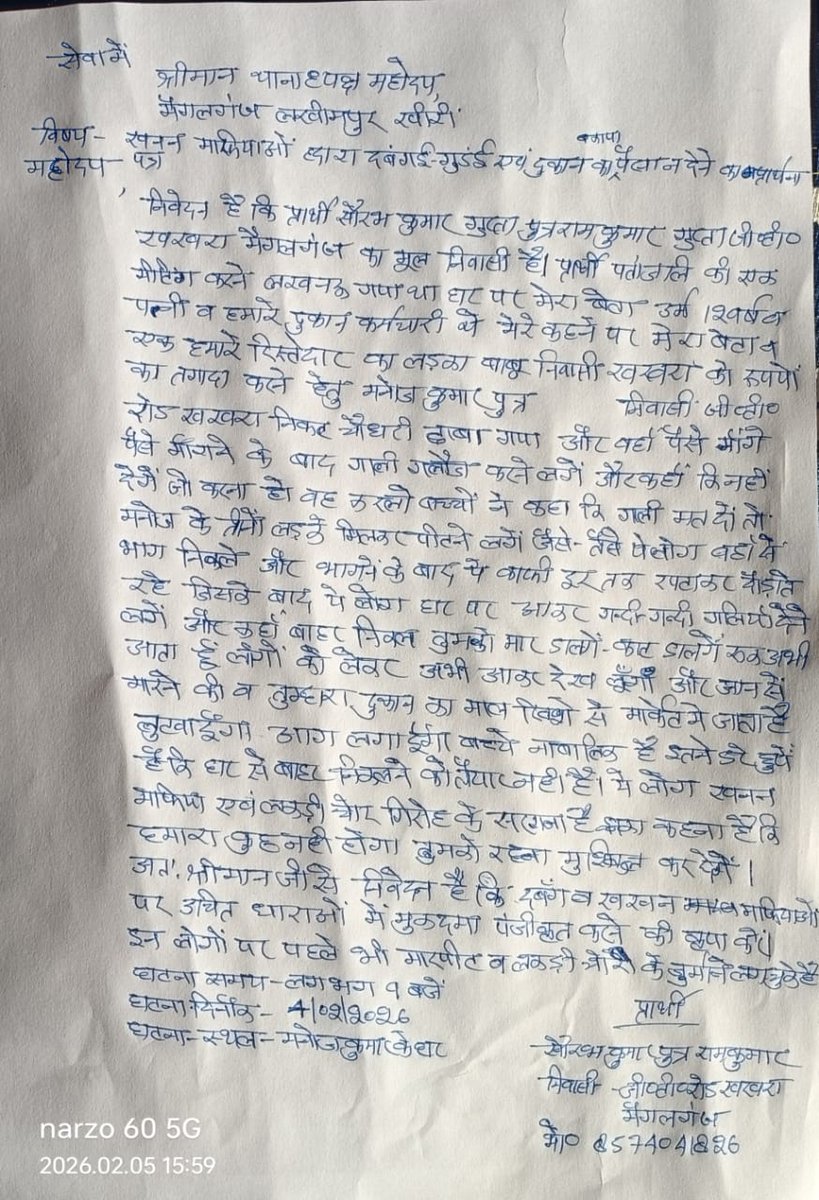 सेवा में
श्रीमान थानाध्यक्ष महोदय,
मैगलगंज लखीमपुर खीरी
विषय - खनन माफियाओं द्वारा दबंगई गुडंई एवं दुकान का बकाया पैसा न देने का प्रार्थना
महोदय पत्र
निवेदन है कि प्रार्थी सौरभ कुमार गुप्ता पुत्र राम कुमार गुप्ता जी०टी०
खखरा मैगलगंज का मूल निवासी है। प्रार्थी पतंजलि की एक
मीटिंग करने लखनऊ गया था घर पर मेरा बेटा उर्म 12 वर्ष व
पत्नी व हमारे दुकान कर्मचारी थे मेरे कहने पर मेरा बेटा व
एक हमारे रिस्तेदार का लड़का निवासी खखरा को रूपयों
का तगादा करने हेतु मनोज कुमार पुत्र निवासी जी०टी०
रोड खखरा निकट चौधरी ढाबा गया और वहाँ पैसे मांगे
पैसे माँगने के बाद गाली गलौज करने लगें और कहाँ कि नहीं
देगें जो करना हो वह करलो बच्चों ने कहा कि गाली मत दो तो
मनोज के तीनों लड़के मिलकर पीटने लगें जैसे-तैसे ये लोग वहाँ से
भाग निकले और भागने के बाद ये काफी दूर तक दौड़ाते
रहे जिसके बाद ये लोग घर पर आकर गन्दी-गन्दी गलियाँ देने
लगें और कहाँ बाहर निकल तुमको मार डालगें-काट डालगें रूक अभी
आता हूँ लोगों को लेकर अभी आकर देख लूँगा और जान से
मारने की व तुम्हारा दुकान का माल से मार्केट में जाता है
लुटवा दूँगा आग लगा दूँगा बच्चे नाबालिक है इतने डरे हुये
हैं कि घर से बाहर निकलने को तैयार नही हैं। ये लोग खनन
माफिया एवं लकड़ी चोर गिरोह के सरगना है कहना है कि
हमारा कुछ नही होगा तुमको रहना मुश्किल कर देगें।
अतः श्रीमान जी से निवेदन है कि दबंग व खनन माफियाओं
पर उचित धाराओं में मुकदमा पंजीकृत करने की कृपा करें।
इन लोगों पर पहले भी मारपीट व लकड़ी चोरी के जुर्माने लग चुके है
घटना समय - लगभग 9 बजें
घटना दिनाँक - 4/02/2026
घटना-स्थल - मनोज कुमार के घर
प्रार्थी
सौरभ कुमार पुत्र रामकुमार
निवासी - जी०टी०रोड खखरा
मैगलगंज
मो० 8574041826
narzo 60 5G
2026.02.05 15:59